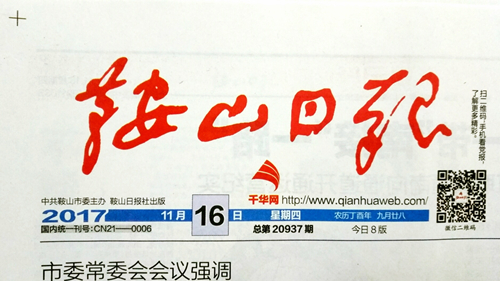 鞍山日报
扫二维码,手机看党报,
了解更多精彩。
千华网 http://www.qianhuaweb.com/
中共鞍山市委主办 鞍山日报社出版
2017 11月 16 日 星期四 农历丁酉年 九月廿八
国内统一刊号:CN21—0006 总第20937期 今日8版
微信二维码
市委常委会会议强调